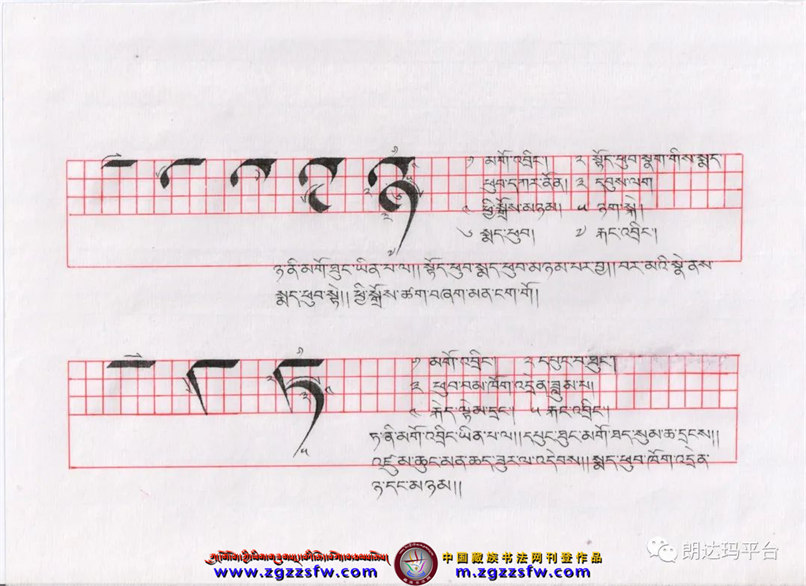 ༡ མགོ་འབྲིང་། ༢ སྟོད་ཕུབ་སྣག་གིས་སྨད་
ཕུབ་དཀར་ནོན། ༣ དབུས་ལག
༤ ཕྱི་སྒྲོས་མཉམ། ༥
༦ སྨད་ཕུབ། ༧ རྐང་འབྲིང་།
ཉ་ནི་མགོ་ཐུང་ཡིན་པ་ལ།། སྟོད་ཕུབ་སྨད་ཕུབ་མཉམ་པར་བྱ།། བར་མའི་སྣེ་ནས
སྨད་ཕུབ་སྟེ།། ཕྱི་སྒྲོས་ཚག་བཞག་མན་ངག་གོ།
༡ མགོ་འབྲིང་། ༢ དཔུང་པ་ཐུང་།
༣ ཕུབ་བམ་ཁོག་འདྲེན་ཟླུམ་པ།
༥ རྐང་འབྲིང་།
ཏ་ནི་མགོ་འབྲིང་ཡིན་པ་ལ།། དཔུང་ཐུང་མགོ་ཐད་སུམ་ཆ་དྲངས།།
འཛུམ་ཆུང་མན་ཆད་ཟུར་ལ་འདེབས།། སྨད་ཕུབ་ཁོག་འདྲེན་
ཉ་དང་མཉམ།།
朗达玛平台
中国藏族书法网刊登作品
www.zgzzsfw.com m.zgzzsfw.com